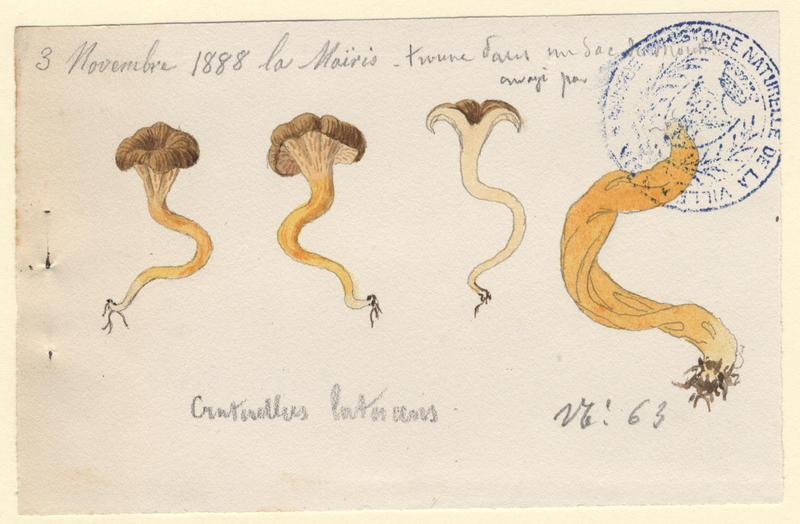 3 Novembre 1888 la Maïris - trouvé dans un Sac de
envoyé par
HISTOIRE NATURELLE DE LA VILLE
Cantarellus lutescens
N°: 63